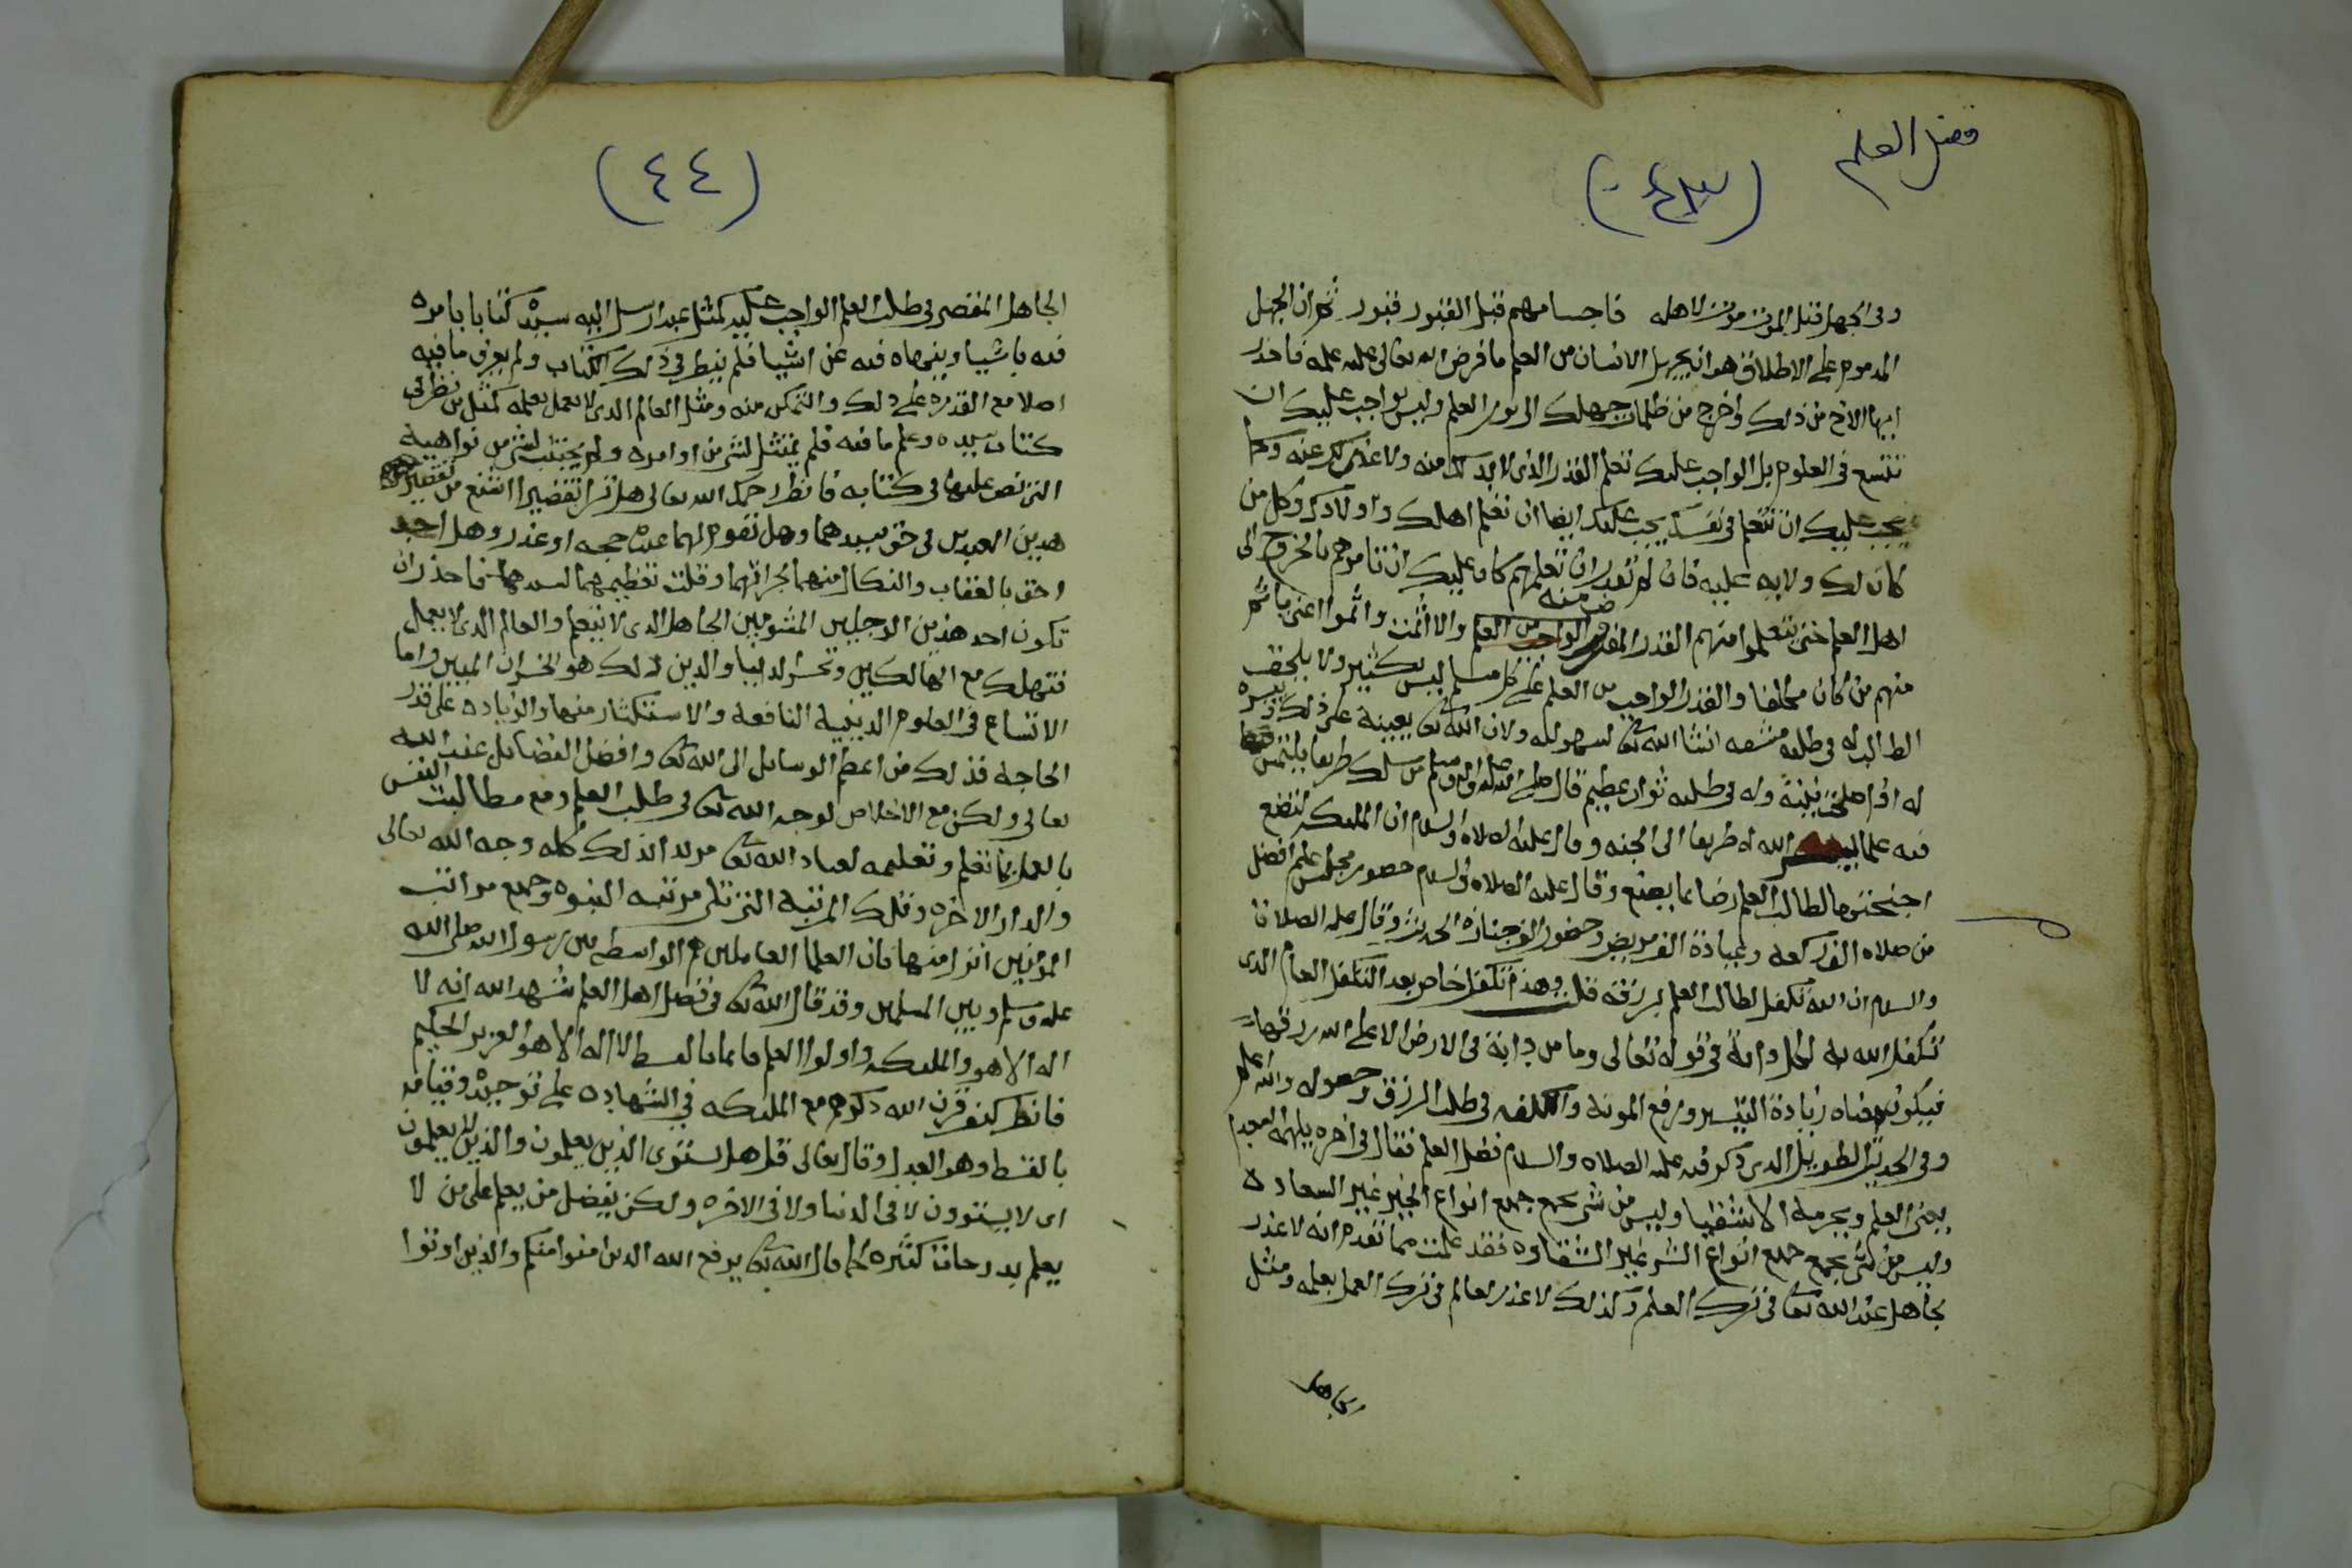 فضل العلم
(٤٣)
وفى الجهل قبل الموت موت لاهله فاجسامهم قبل القبور قبور ثم ان الجهل
المدموم على الاطلاق هو ان يجهل الانسان من العلم ما فرض الله تعالى عليه علمه فاحذر
ايها الاخ من ذلك واخرج من ظلمات جهلك الى نور العلم وليس بواجب عليك ان
تتسع فى العلوم بل الواجب عليك تعلم القدر الذى لا بد لك منه ولا غنى لك عنه وكما
يجب عليك ان تتعلم فى نفسك يجب عليك ايضا ان تعلم اهلك واولادك وكل من
كان لك ولايه عليه فان لم تقدر ان تعلمهم كان عليك ان تامرهم بالخروج الى
اهل العلم حتى يتعلموا منهم القدر المفروض منه الواجب من العلم والا اثمت واثموا اعنى ياثم
منهم من كان مكلفا والقدر الواجب من العلم على كل مسلم ليس بكثير ولا يلحق
الطالب له فى طلبه مشقه انشا الله تعا لسهولته ولان الله تعا يعينه على ذلك وييسره
له اذا صلحت نيته وله فى طلبه ثواب عظيم قال صلى الله عليه واله وسلم من سلك طريقا يلتمس
فيه علما الله له طريقا الى الجنه وقال عليه الصلاه والسلام ان الملئكه لتضع
اجنحتها لطالب العلم رضا بما يصنع وقال عليه الصلاه والسلام حضور مجلس علم افضل
من صلاه الف ركعه وعيادة الف مريض وحضور الف جنازة الحديث وقال عليه الصلاة
والسلام ان الله تكفل لطالب العلم برزقه قلت وهذا تكفل خاص بعد التكفل العام الذى
تكفل الله به لكل دابة فى قوله تعالى وما من دابة فى الارض الا على الله رزقها
فيكون معناه زيادة التيسير ورفع المونه والكلفه فى طلب الرزق وحصوله والله اعلم
وفى الحديث الطويل الذى ذكر فيه عليه الصلاه والسلام فضل العلم فقال فى اخره يلهمه السعدا
يعنى العلم ويحرمه الاشقيا وليس من شى يجمع جميع انواع الخير غير السعاده
وليس من شى يجمع جميع انواع الشر غير الشقاوه فقد علمت مما تقدم انه لا عذر
لجاهل عند الله تعا فى ترك العلم وكذلك لا عذر لعالم فى ترك العمل بعلمه ومثل
الجاهل
(٤٤)
الجاهل المقصر فى طلب العلم الواجب عليه كمثل عبد ارسل اليه سيده كتابا يامره
فيه باشيا وينهاه فيه عن اشيا فلم ينظر فى ذلك الكتاب ولم يعرف ما فيه
اصلا مع القدره على ذلك والتمكن منه ومثل العالم الذى لا يعمل بعلمه كمثل من نظر فى
كتاب سيده وعلم ما فيه فلم يمتثل لشى من اوامره ولم يجتنب لشى من نواهيه
التى نص عليها فى كتابه فانظر رحمك الله تعالى هل ترا تقصيرا اشنع من تقصير
هدين العبدين فى حق سيدهما وهل تقوم لهما عنده حجه او عذر وهل احد
احق بالعقاب والنكال منهما لجراتهما وقلت تعظيمهما لسيدهما فاحذر ان
تكون احد هذين الرجلين المشومين الجاهل الذى لا يتعلم والعالم الذى لا يعمل
فتهلك مع الهالكين وتخسر الدنيا والدين ذلك هو الخسران المبين واما
الاتساع فى العلوم الدينيه النافعه والاستكثار منها والزياده على قدر
الحاجه فذلك من اعظم الوسايل الى الله تعا وافضل الفضايل عند الله
تعالى ولكن مع الاخلاص لوجه الله تعا فى طلب العلم ومع مطالبت النفس
بالعمل بما تعلم وتعليمه لعباد الله تعا مريدا بذلك كله وجه الله تعالى
والدار الاخره وتلك المرتبه التى تلى مرتبه النبوه وجميع مراتب
المومنين انزل منها فان العلما العاملين هم الواسطه بين رسول الله صلى الله
عليه وسلم وبين المسلمين وقد قال الله تعا فى فضل اهل العلم شهد الله انه لا
اله الا هو والملئكه واولوا العلم قايما بالقسط لا اله الا هو العزيز الحكيم
فانظر كيف قرن الله ذكرهم مع الملئكه فى الشهاده على توحيده وقيامه
بالقسط وهو العدل وقال تعالى قل هل يستوى الذين يعلمون والذين لا يعلمون
اى لا يستوون لا فى الدنيا ولا فى الاخره ولكن يفضل من يعلم على من لا
يعلم بدرجات كثيره كما قال الله تعا يرفع الله الذين امنوا منكم والذين اوتوا